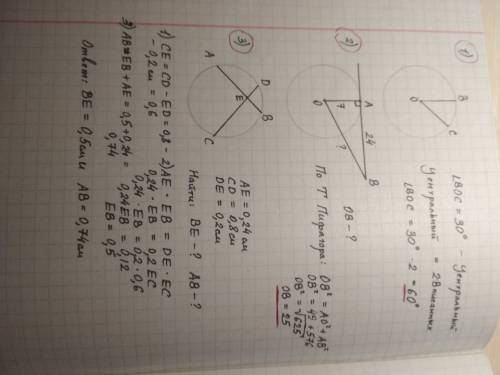 1)
B
O
C
∠BOC = 30°
Центральный
Центральный = 2 Вписанных
∠BOC = 30° · 2 = 60°
2)
O 7 A
24
?
B
OB - ?
По Т Пифагора: OB² = AO² + AB²
OB² = 49 + 576
OB² = √625
OB = 25
3)
A
D
E
B
C
AE = 0,24 см
CD = 0,8 см
DE = 0,2 см
Найти: BE - ? AB - ?
1) CE = CD - ED = 0,8 -
- 0,2 см = 0,6
2) AE · EB = DE · EC
0,24 · EB = 0,2 EC
0,24 · EB = 0,2 · 0,6
0,24 EB = 0,12
EB = 0,5
3) AB = EB + AE = 0,5 + 0,24 =
0,74
Ответ: BE = 0,5 см и AB = 0,74 см